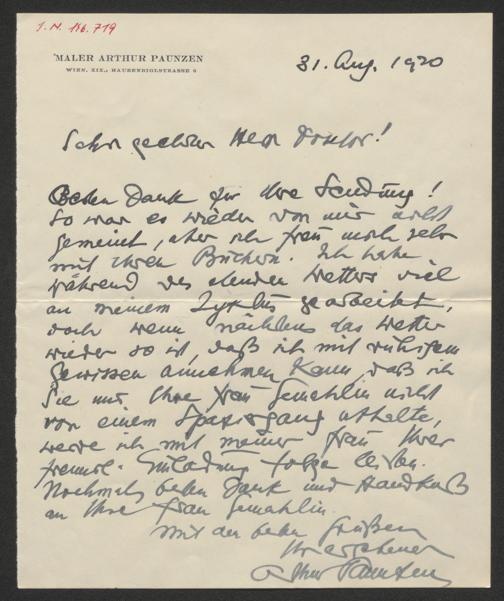 I.N. 186.719
MALER ARTHUR PAUNZEN
WIEN, XIX., HAUBENBIGLSTRASSE 6
31. Aug. 1920
Sehr geehrter Herr Doktor!
Besten Dank für Ihre Sendung!
So war es wieder von mir nicht
gemeint, aber ich freu mich sehr
mit Ihren Büchern. Ich habe
während des elenden Wetters viel
an meinem Zyklus gearbeitet,
doch wenn nächstens das Wetter
wieder so ist, daß ich mit ruhigem
Gewissen annehmen kann, daß ich
Sie und Ihre Frau Gemahlin nicht
von einem Spaziergang abhalte,
werde ich mit meiner Frau Ihrer
freundl. Einladung folge leisten.
Nochmals besten Dank und Handkuß
an Ihre Frau Gemahlin.
Mit den besten Grüßen
Ihr ergebener
Arthur Paunzen